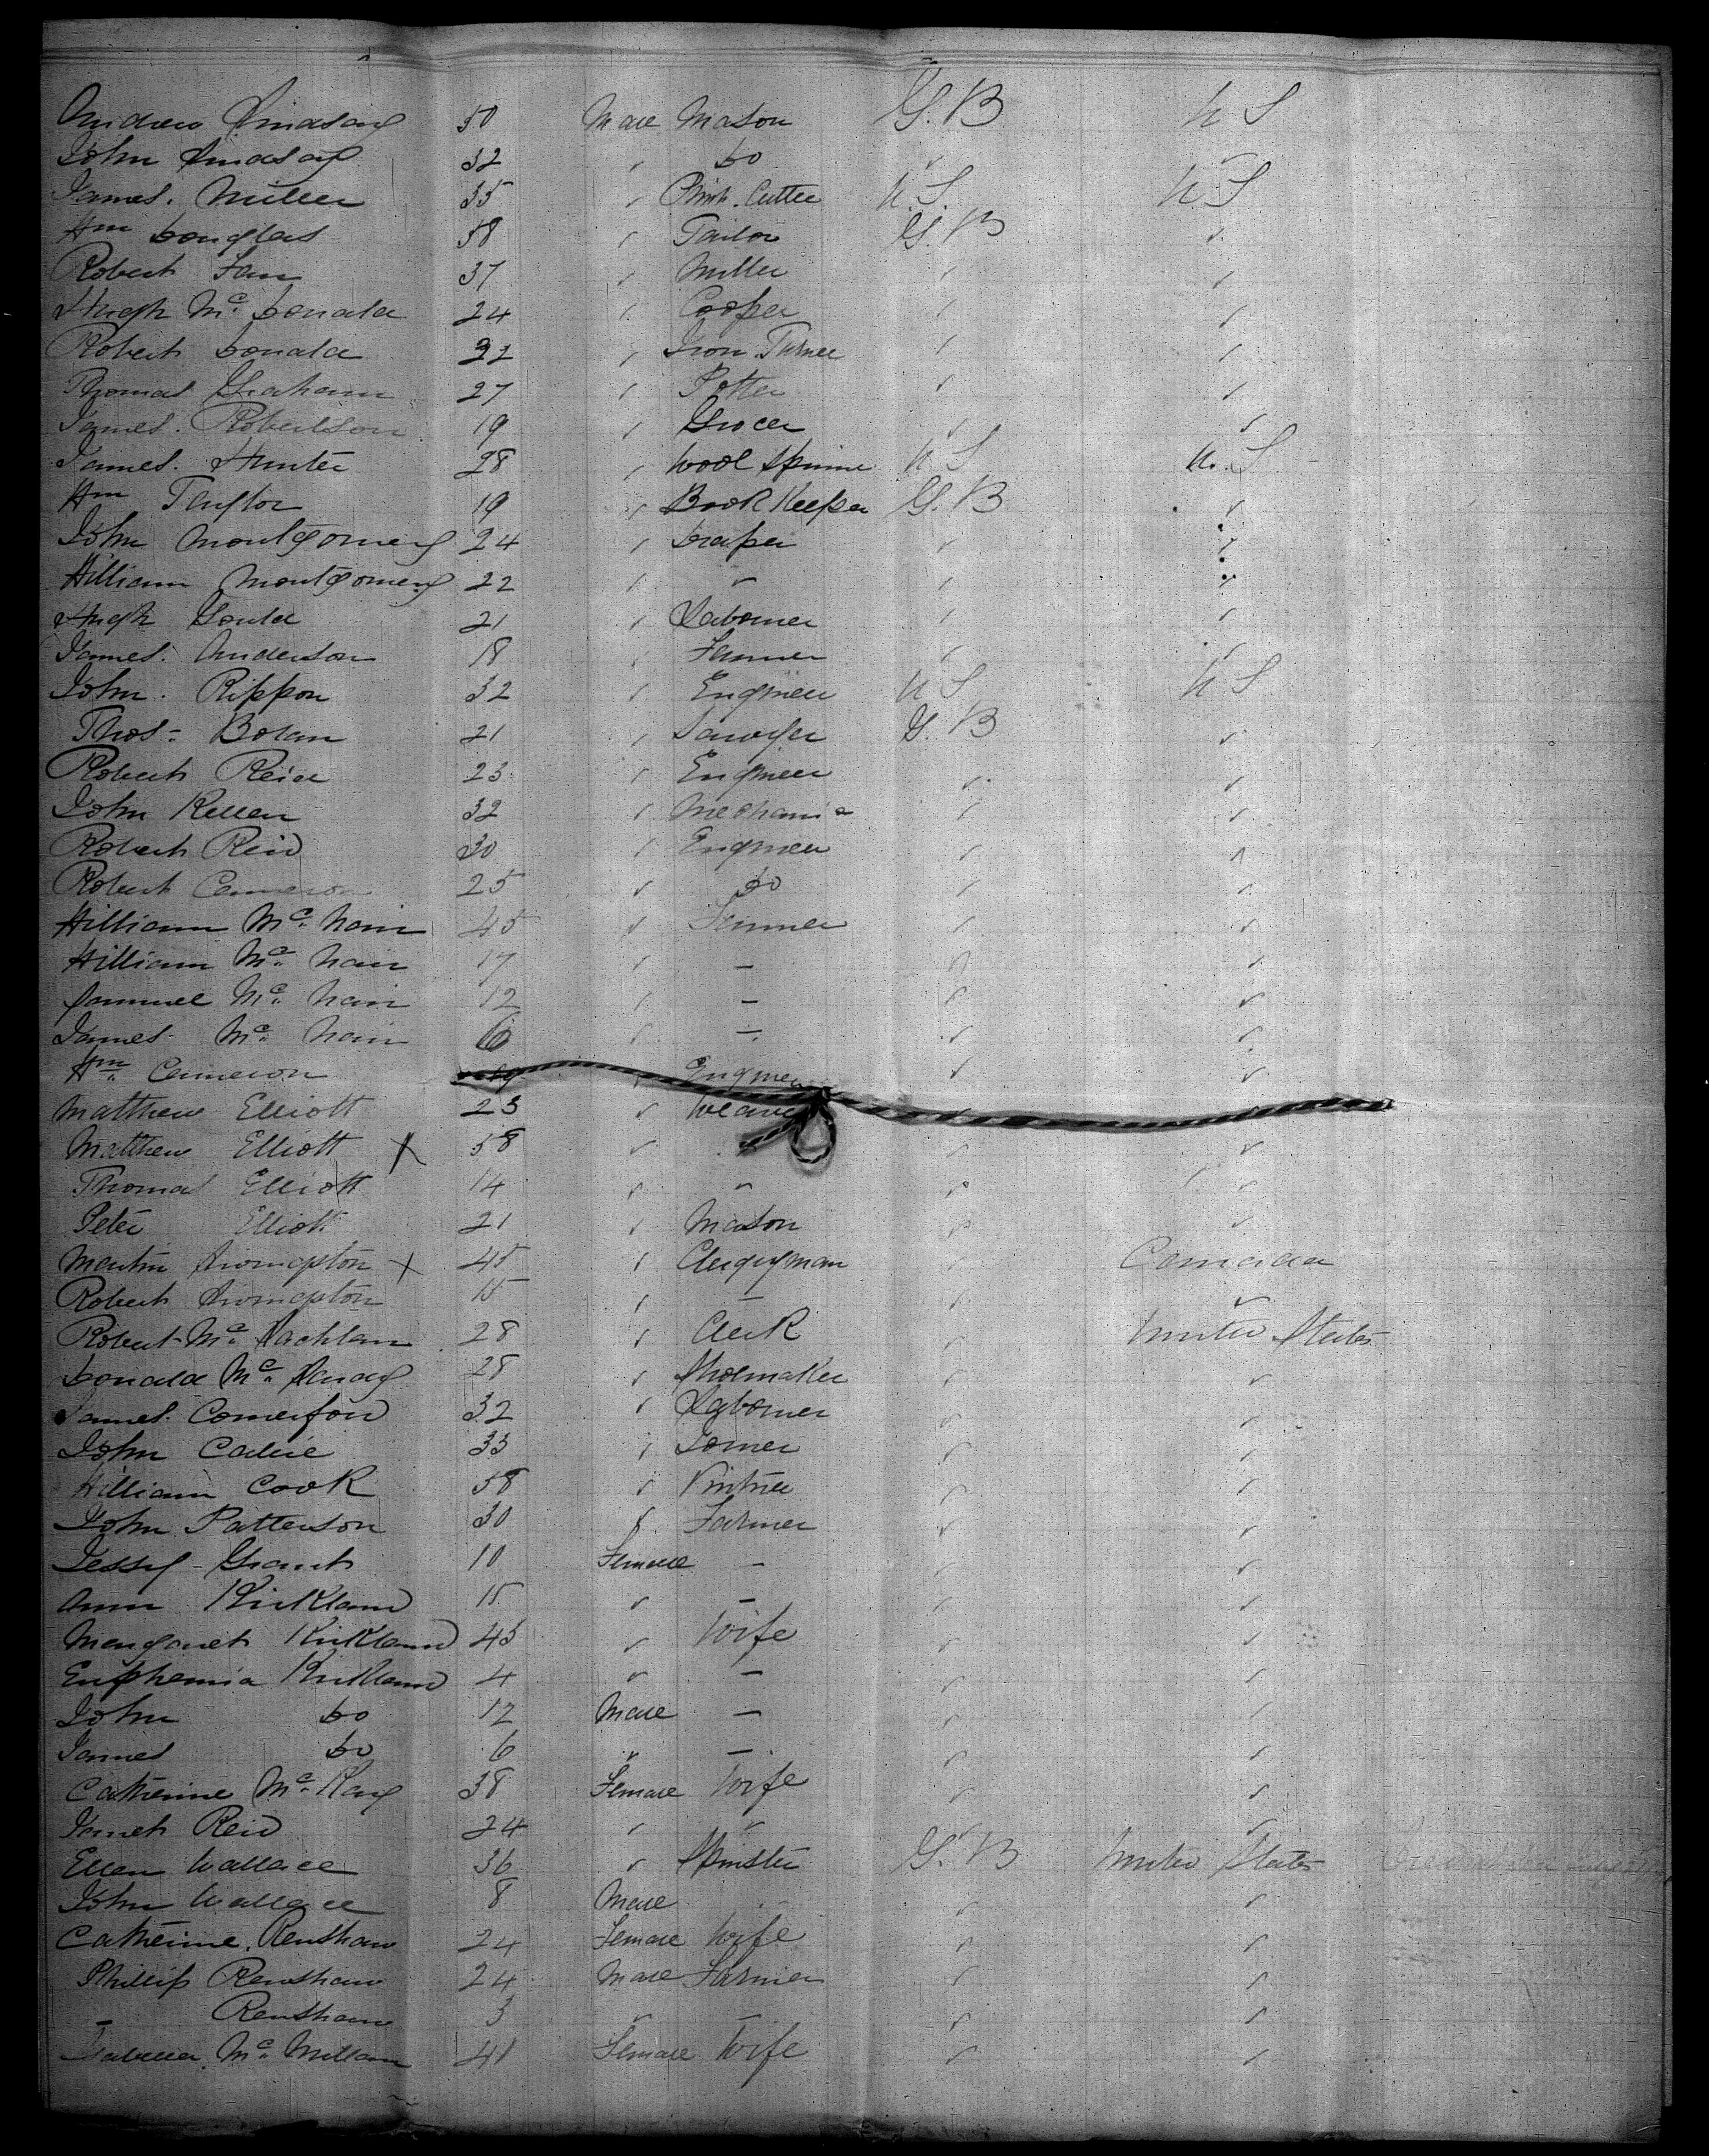 Andrew Lindsay 50 Male Mason G.B U S
John Lindsay 32 " Do " "
James. Miller 35 " Print. Cutter U.S. U S
Wm Douglas 58 " Tailor G.B "
Robert 37 " Miller " "
Hugh Mc Donald 24 " Cooper " "
Robert Donald 22 " Iron Turner " "
Thomas Graham 27 " Potter " "
James. Robertson 19 " Grocer " "
James. Hunter 28 " Wool Spinner U S U. S
Wm Taylor 19 " Book Keeper G.B "
John Montgomery 24 " Draper " "
William Montgomery 22 " " " "
Hugh Gould 21 " Labourer " "
James. Anderson 18 " Farmer " "
John. Rippon 32 " Engineer U S U S
Thos- Bolan 21 " Sawyer G.B "
Robert Reid 23 " Engineer " "
John Killen 32 " Mechanic " "
Robert Reid 30 " Engineer " "
Robert Cameron 25 " Do " "
William Mc Nair 45 " Farmer " "
William Mc Nair 17 " - " "
Samuel Mc Nair 12 " - " "
James Mc Nair 6 " - " "
Wm Cameron 19 " Engineer " "
Matthew Elliott 23 " Weaver " "
Matthew Elliott X 58 " " "
Thomas Elliott 14 " " " "
Peter Elliott 21 " Mason " "
Martin Livingston X 45 " Clergyman " Canada
Robert Livingston 15 " - " "
Robert Mc Lachlan 28 " Clerk " United States
Donald Mc 28 " Shoemaker " "
James. Comerford 32 " Labourer " "
John Cadie 33 " Joiner " "
William Cook 58 " Vintner " "
John Patterson 30 " Farmer " "
Jessy Grant 10 Female - " "
Ann Kirkland 15 " - " "
Margaret Kirkland 45 " Wife " "
Euphemia Kirkland 4 " - " "
John Do 12 Male - " "
James Do 6 " - " "
Catherine Mc Kay 38 Female Wife " "
Janet Reid 24 " " " "
Ellen Wallace 36 " Spinster G.B United States
John Wallace 8 Male " "
Catherine. Renshaw 24 Female Wife " "
Phillip Renshaw 24 Male Farmer " "
- Renshaw 3 " - " "
Isabella Mc Millan 41 Female Wife " "